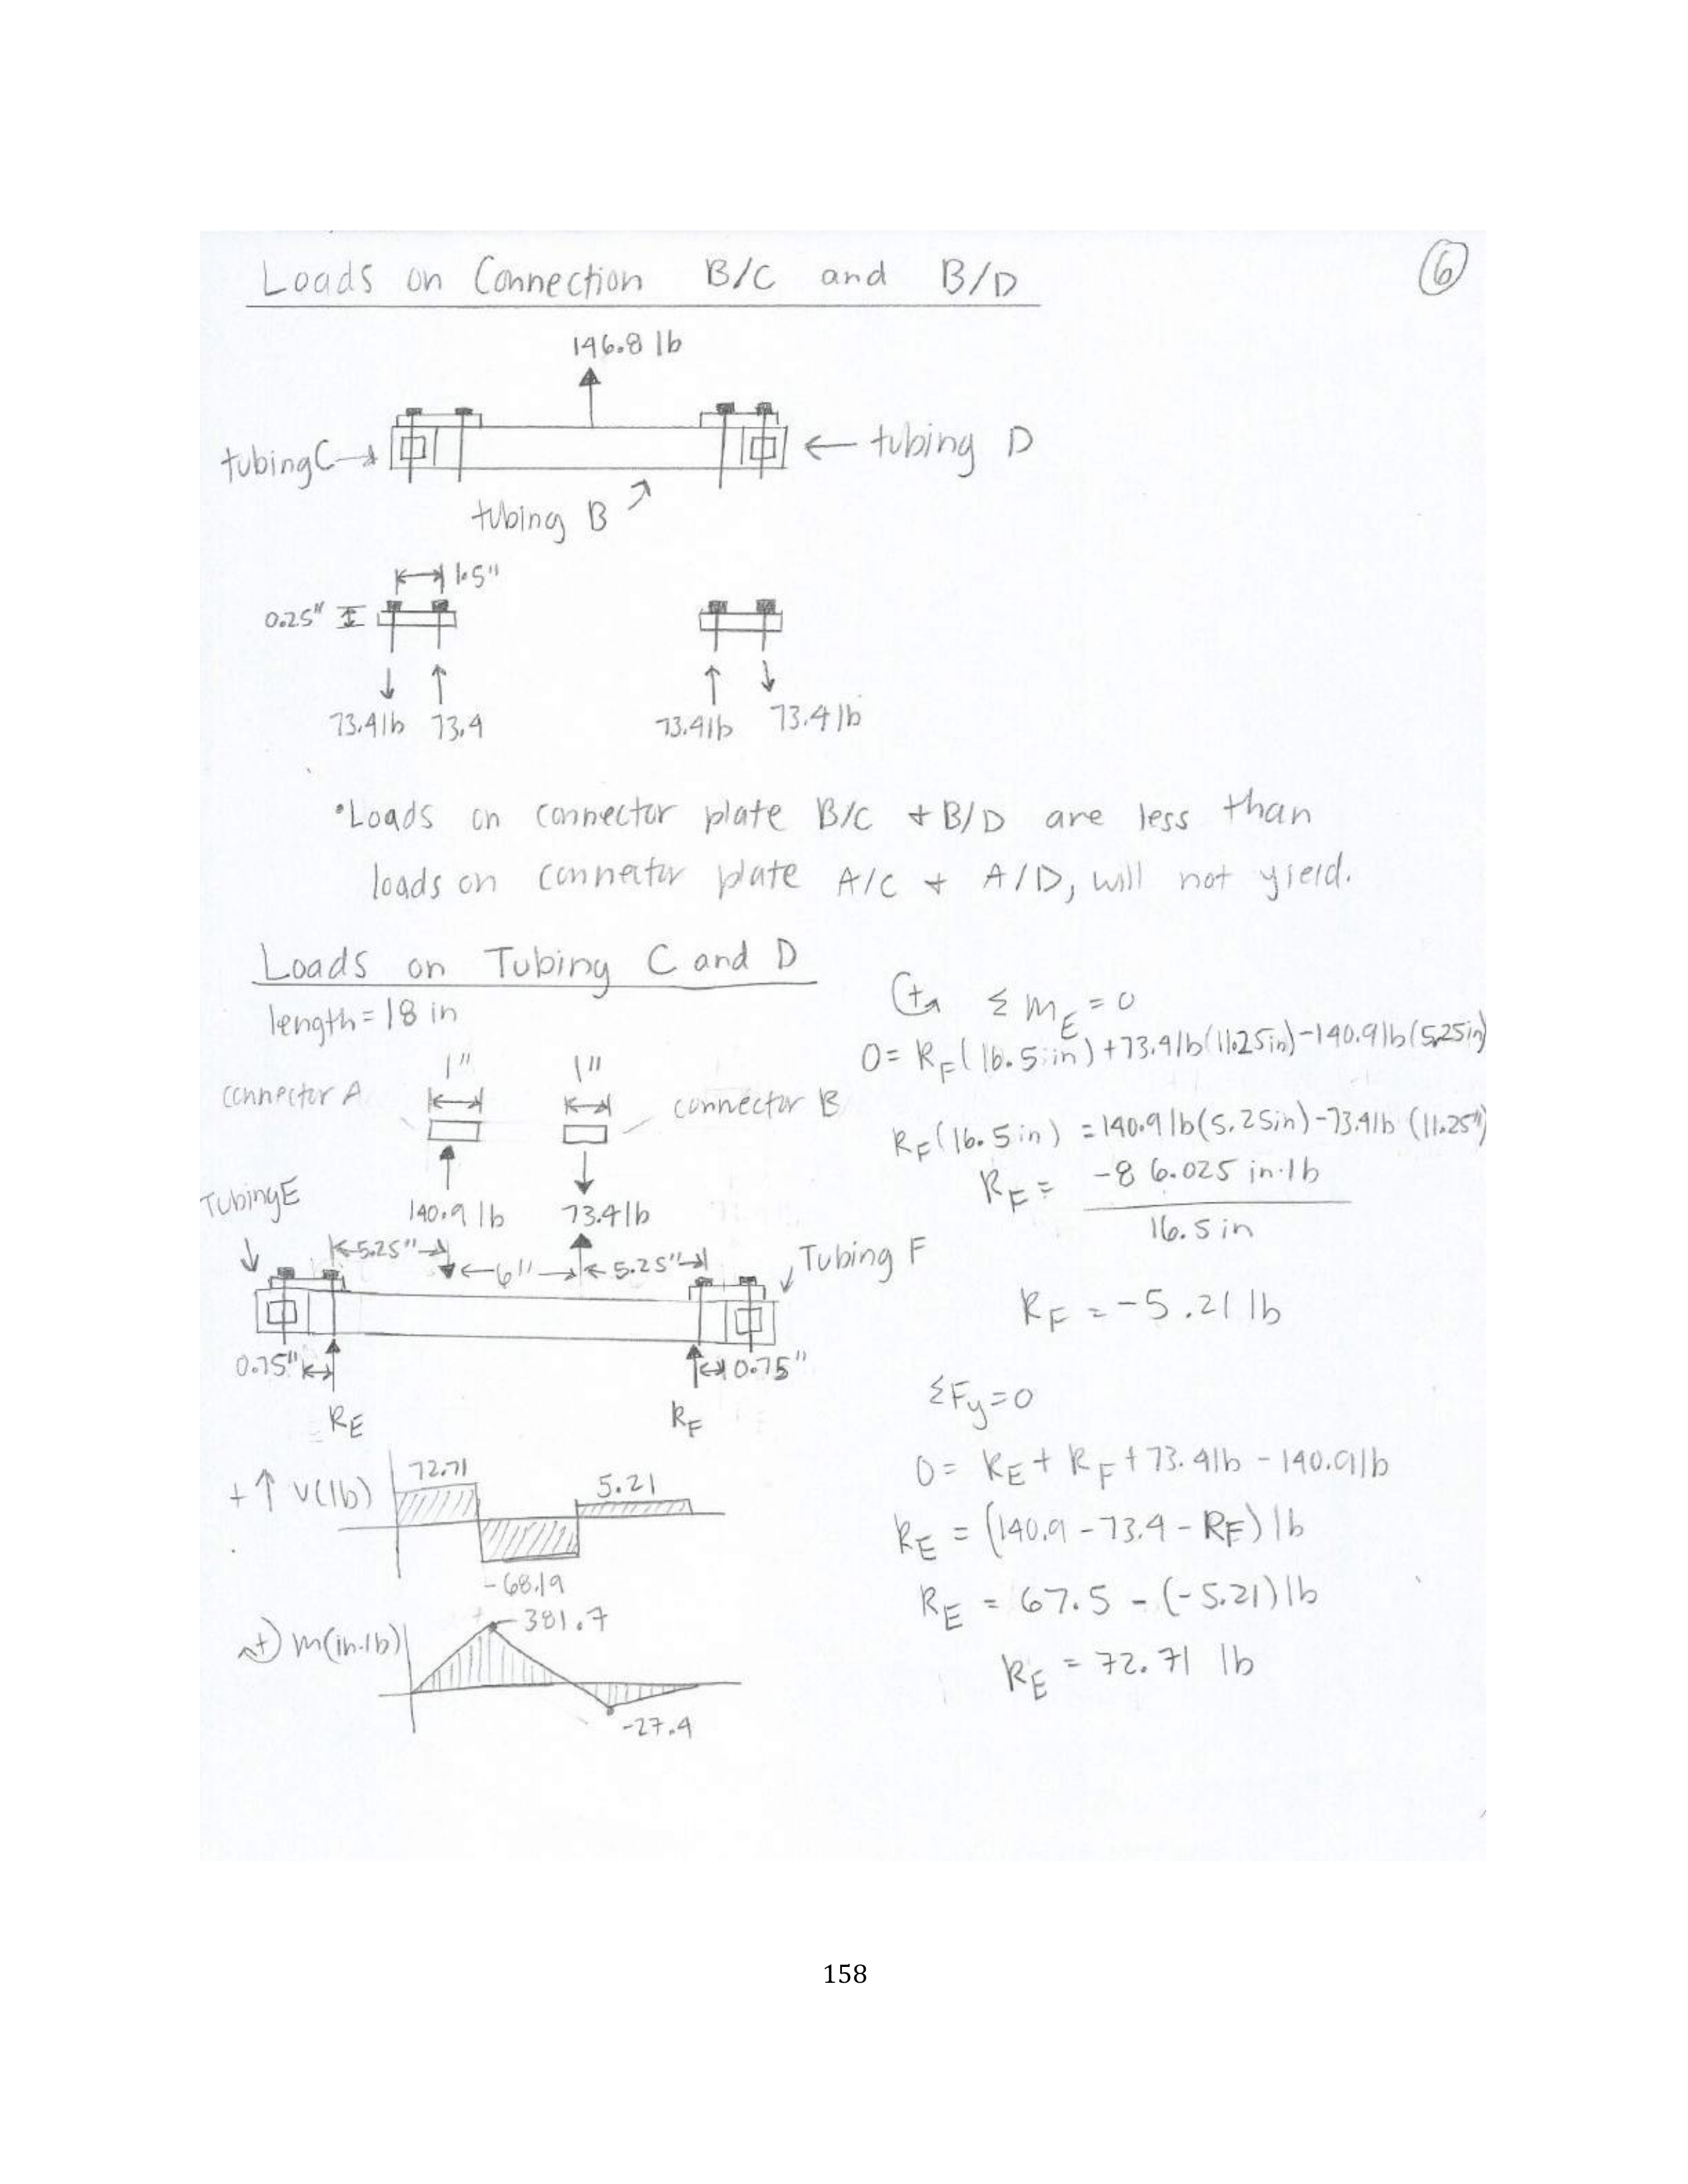 Loads on Connection B/C and B/D
6
146.8 lb
tubing C
tubing D
tubing B
1.5"
0.25"
73.4lb 73.4
73.4lb 73.4lb
•Loads on connector plate B/C + B/D are less than
loads on connector plate A/C + A/D, will not yield.
Loads on Tubing C and D
length = 18 in
1" 1"
connector A
connector B
140.9 lb 73.4lb
Tubing E
5.25" 6" 5.25"
Tubing F
0.75" 0.75"
RE RF
+↑ V(lb)
72.71
5.21
-68.19
+ m(in·lb)
381.7
-27.4
+ ΣME = 0
0 = RF(16.5in) + 73.4lb(11.25in) - 140.9lb(5.25in)
RF(16.5in) = 140.9lb(5.25in) - 73.4lb (11.25")
RF = -86.025 in·lb
16.5 in
RF = -5.21 lb
ΣFy = 0
0 = RE + RF + 73.4lb - 140.9lb
RE = (140.9 - 73.4 - RF) lb
RE = 67.5 - (-5.21) lb
RE = 72.71 lb
158